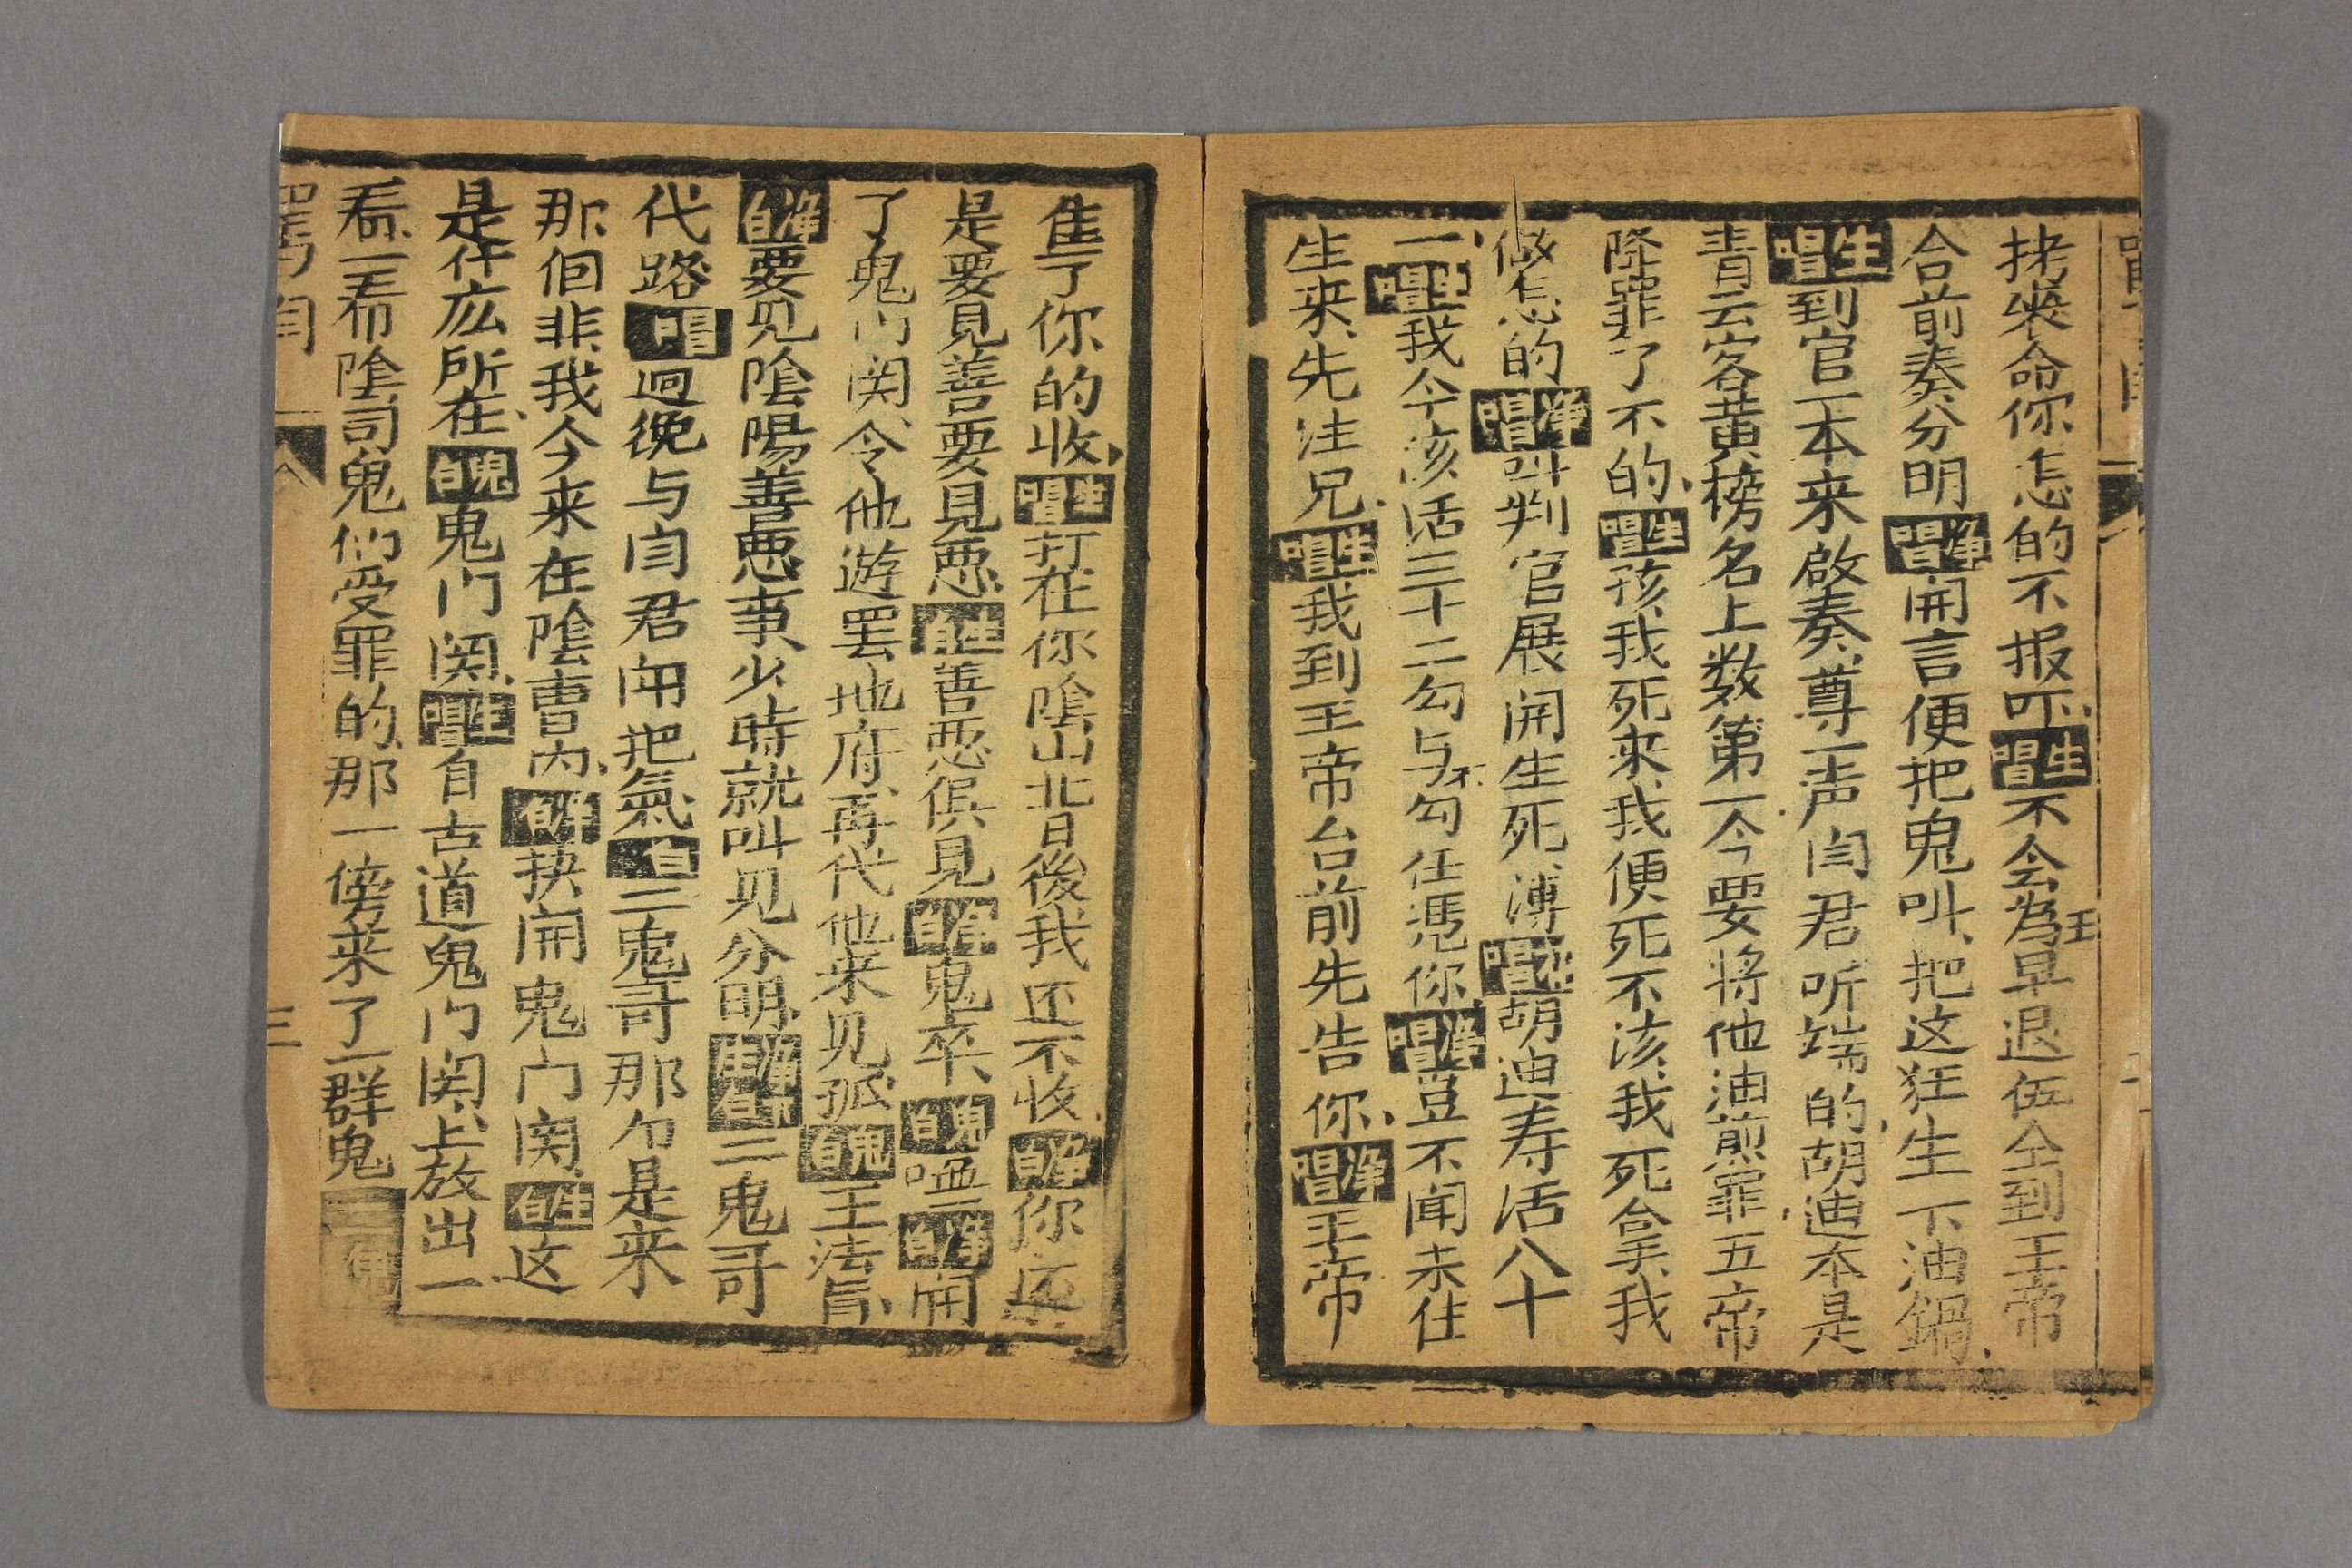 拷喪命你怎的不报吓生唱不会為王早退伍仝到王帝
台前奏分明净唱開言便把鬼叫把这狂生下油鍋
生唱到官一本来啟奏尊一声闫君听端的胡迪本是
青云客黄榜名上数第一今要将他油煎罪五帝
降罪了不的生唱孩我死来我便死不该我死拿我
做怎的净唱叫判官展開生死溥唱胡迪寿活八十
一生唱我今该活三十二勾与不勾任凴你净唱豈不聞未住
生来先注兄生唱我到王帝台前先告你净唱王帝
隹了你的收生唱打在你陰山北日後我还不收净白你还
是要見善要見悪生白善悪俱見净白鬼卒鬼白嗑净白開
了鬼门関令他遊罢地府再代他来见孤鬼白王法旨
净白要见陰陽善悪事少時就叫见分明净下生白二鬼哥
代路唱迴後与闫君闹把氣白二鬼哥那ケ是来
那個非我今来在陰曹内鬼白抉開鬼门関生白这
是仵庅所在鬼白鬼门関生唱自古道鬼门関上放出一
看一看陰司鬼们受罪的那一傍来了一群鬼
罵闫
三